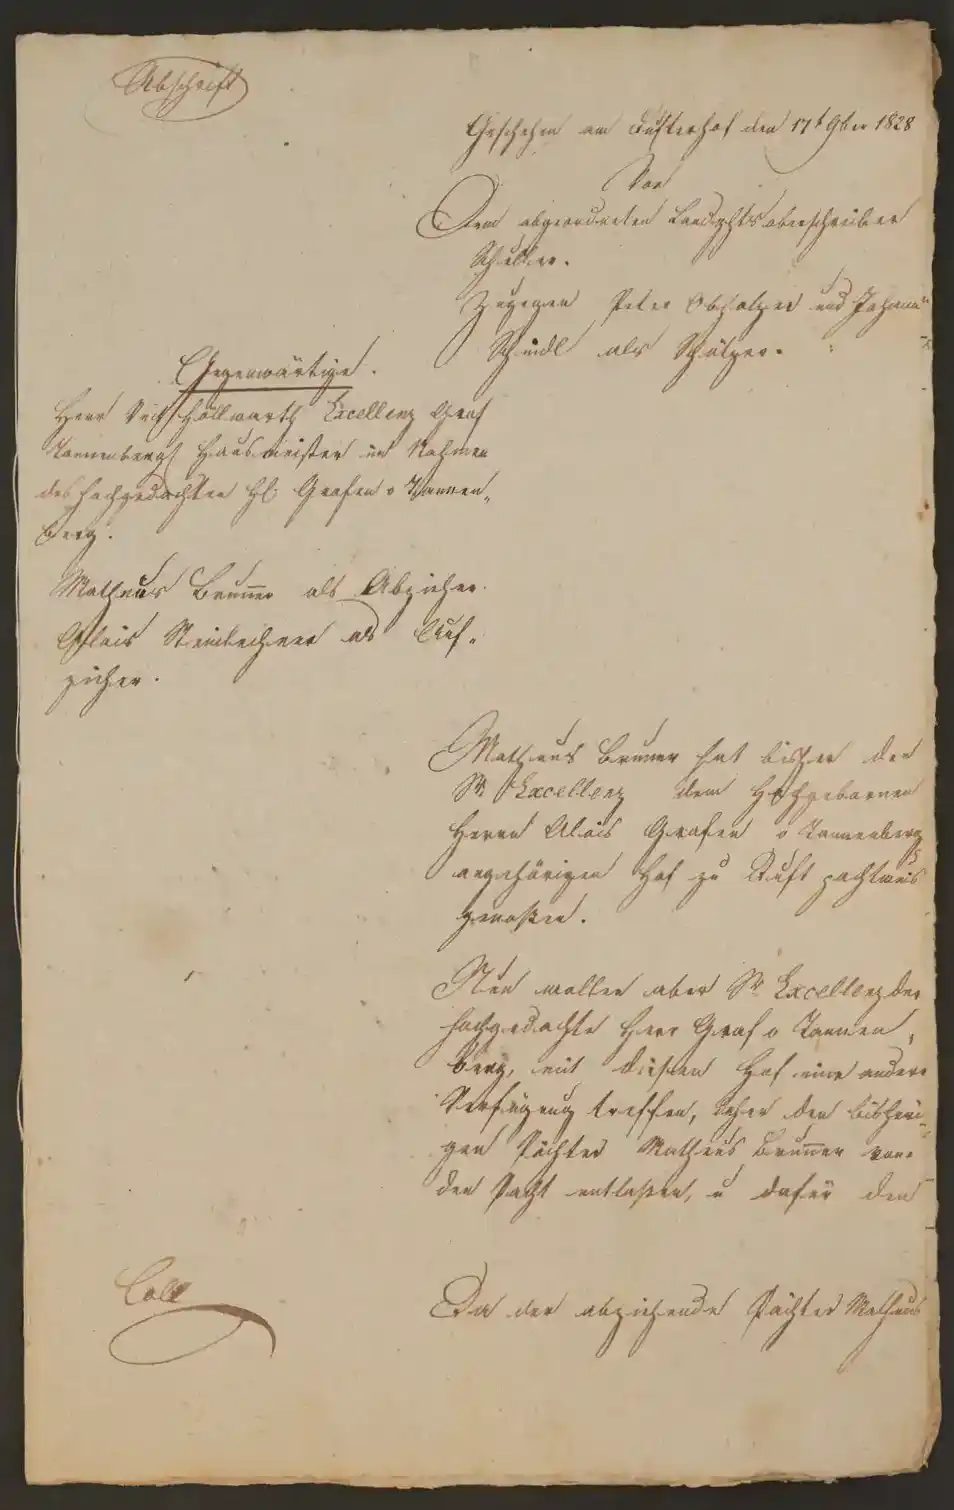 Abschrift
Geschehen am Tufterhof den 17t 9ber 1828
Vor
Dem abgeordneten Landgchtsoberschreiber
Schuller.
Zugegen Peter Obholzer und Johann
Schindl als Schätzer.
Gegenwärtige.
Herr Veit Höllwarth Excellenz Graf
Tannenbergs Hausmeister im Nahmen
des hochgedachten H: Grafen v Tannen„
berg.
Matheus Brunner als Abzieher.
Alois Steinlechner als Auf„
zieher.
Matheus Brunner hat bisher den
Sr Excellenz dem Hochgebornen
Herrn Alois Grafen v Tannenberg
angehörigen Hof zu Tuft pachtweis
genoßen.
Nun wollen aber Sr Excellenz der
hochgedachte Herr Graf v Tannen„
berg, mit diesen Hof eine andere
Verfügung treffen, daher den bisheri„
gen Pächter Matheus Brunner von
den Pacht entlaßen, u dafür den
Coll
Da der abziehende Pächter Matheus